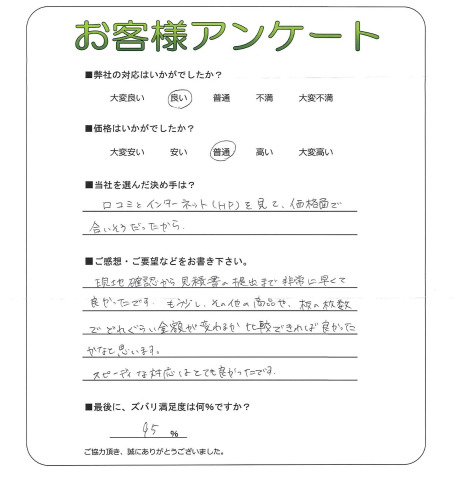 お客様アンケート
■弊社の対応はいかがでしたか？
大変良い 良い 普通 不満 大変不満
■価格はいかがでしたか？
大変安い 安い 普通 高い 大変高い
■当社を選んだ決め手は？
口コミとインターネット(HP)を見て、価格面で
合いそうだったから。
■ご感想・ご要望などをお書き下さい。
現地確認から見積書の提出まで非常に早くて
良かったです。もう少し、その他の商品や、板の枚数
でどれぐらい金額が変わるか比較できれば良かった
かなと思います。
スピーディな対応はとても良かったです。
■最後に、ズバリ満足度は何％ですか？
95 ％
ご協力頂き、誠にありがとうございました。